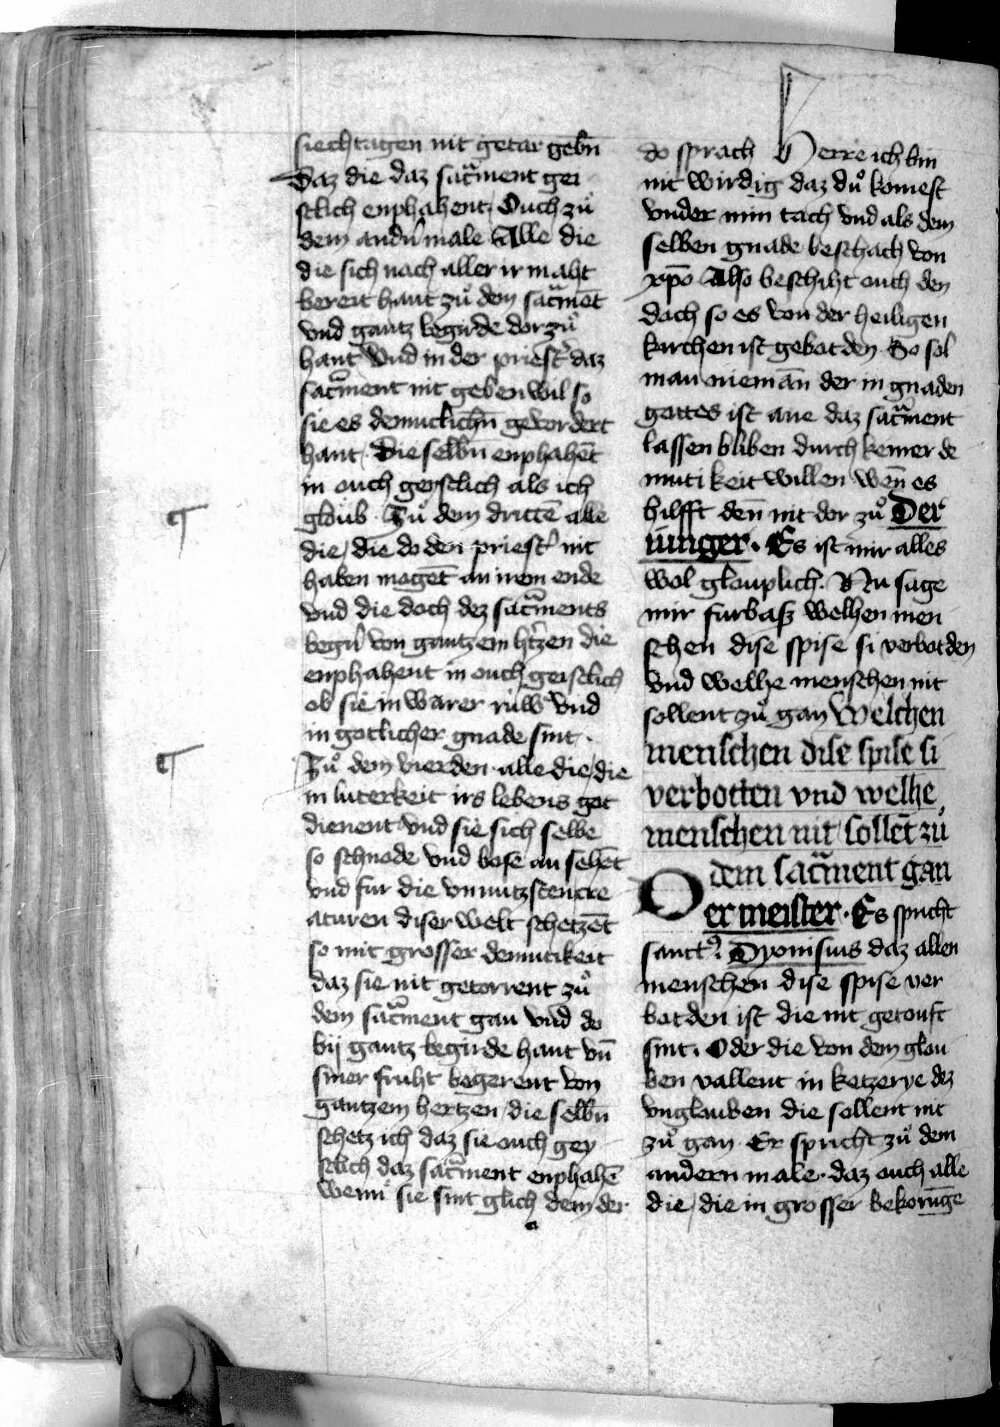 siechtagen nit getar gebn̄
Daz die daz sac̄ment gei
stlich enphahent. Ouch zuͦ
dem andn̄ male Alle die
die sich nach aller ir maht
bereit hant zuͦ dem sac̄mēt
vnd gantz begirde dorzuͦ
hant Vnd in der priest̾ daz
sac̄ment nit geben wil so
sie es demuͤtlichn̄ gevordert
hant. Die selbn̄ enphahēt
in ouch geistlich als ich
gloͤub. Zuͦ dem drittē alle
die, die do den priest̾ nit
haben mogēt an irem ende
vnd die doch dez sac̄ments
beger̄ von gantzem h̾tzen die
enphahent in ouch geistlich
ob sie in warer ruͤw vnd
in gotlicher gnade sint.
Zuͦ dem vierden alle die, die
in luterkeit irs lebens got
dienent vnd sie sich selbe
so schnode vnd boͤse an sehēt
vnd fur die vnnutzsten cre
aturen diser welt schetzēt
so mit grosser demuͤtikeit
daz sie nit getorrent zuͦ
dem sac̄ment gan vnd do
bij gantz begirde hant vn̄
siner fruht begerent von
gantzem hertzen, die selbn̄
schetz ich daz sie ouch gey
stlich daz sac̄ment enphahē
wenn sie sint glich dem der
do sprach Herre ich bin
nit wirdig daz duͦ komest
vnder min tach vnd als dem
selben gnade beschach von
xp̄o Also beschiht ouch den
doch so es von der heiligen
kirchen ist gebotden. So sol
man nieman der in gnaden
gottes ist ane daz sac̄ment
lassen bliben durch keiner de
muti keit willen wen̄ es
hilfft den̄ nit dor zuͦ Der
iunger. Es ist mir alles
wol glouplich. Nu sage
mir furbasz welhen men
schen dise spise si verbotden
vnd welhe menschen nit
sollent zuͦ gan Welchen
menschen dise spise si
verbotten vnd welhe
menschen nit sollēt zuͦ
dem sac̄ment gan
Der meister. Es spricht
sanctꝰ. Dyonisius daz allen
menschen dise spise ver
botden ist die nit getouft
sint. Oder die von dem glou
ben vallent in ketzerye dez
vnglouben die sollent nit
zuͦ gan. Er spricht zuͦ dem
andern male. daz ouch alle
die, die in grosser bekorūge